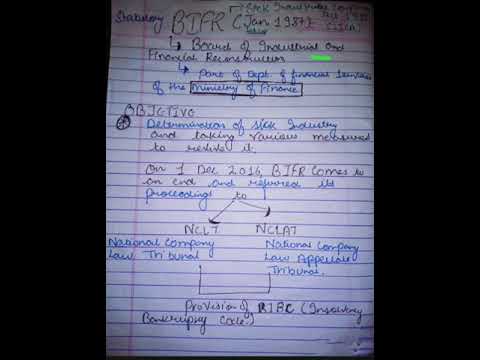 Statutory BIFR (Jan 1987)
Sick Industries Com
Act 1985
(SICA)
Board of Industrial and
Financial Reconstruction
Part of Dept of financial Services
of the Ministry of Finance
OBJCTIVE
Determination of sick Industry
and taking various measured
to revive it.
On 1 Dec 2016, BIFR Comes to
an end and referred its
proceedings to
NCLT NCLAT
National Company
Law Tribunal
National Company
Law Appellate
Tribunal.
Provision of IBC (Insolvency
Bankruptcy Code.)